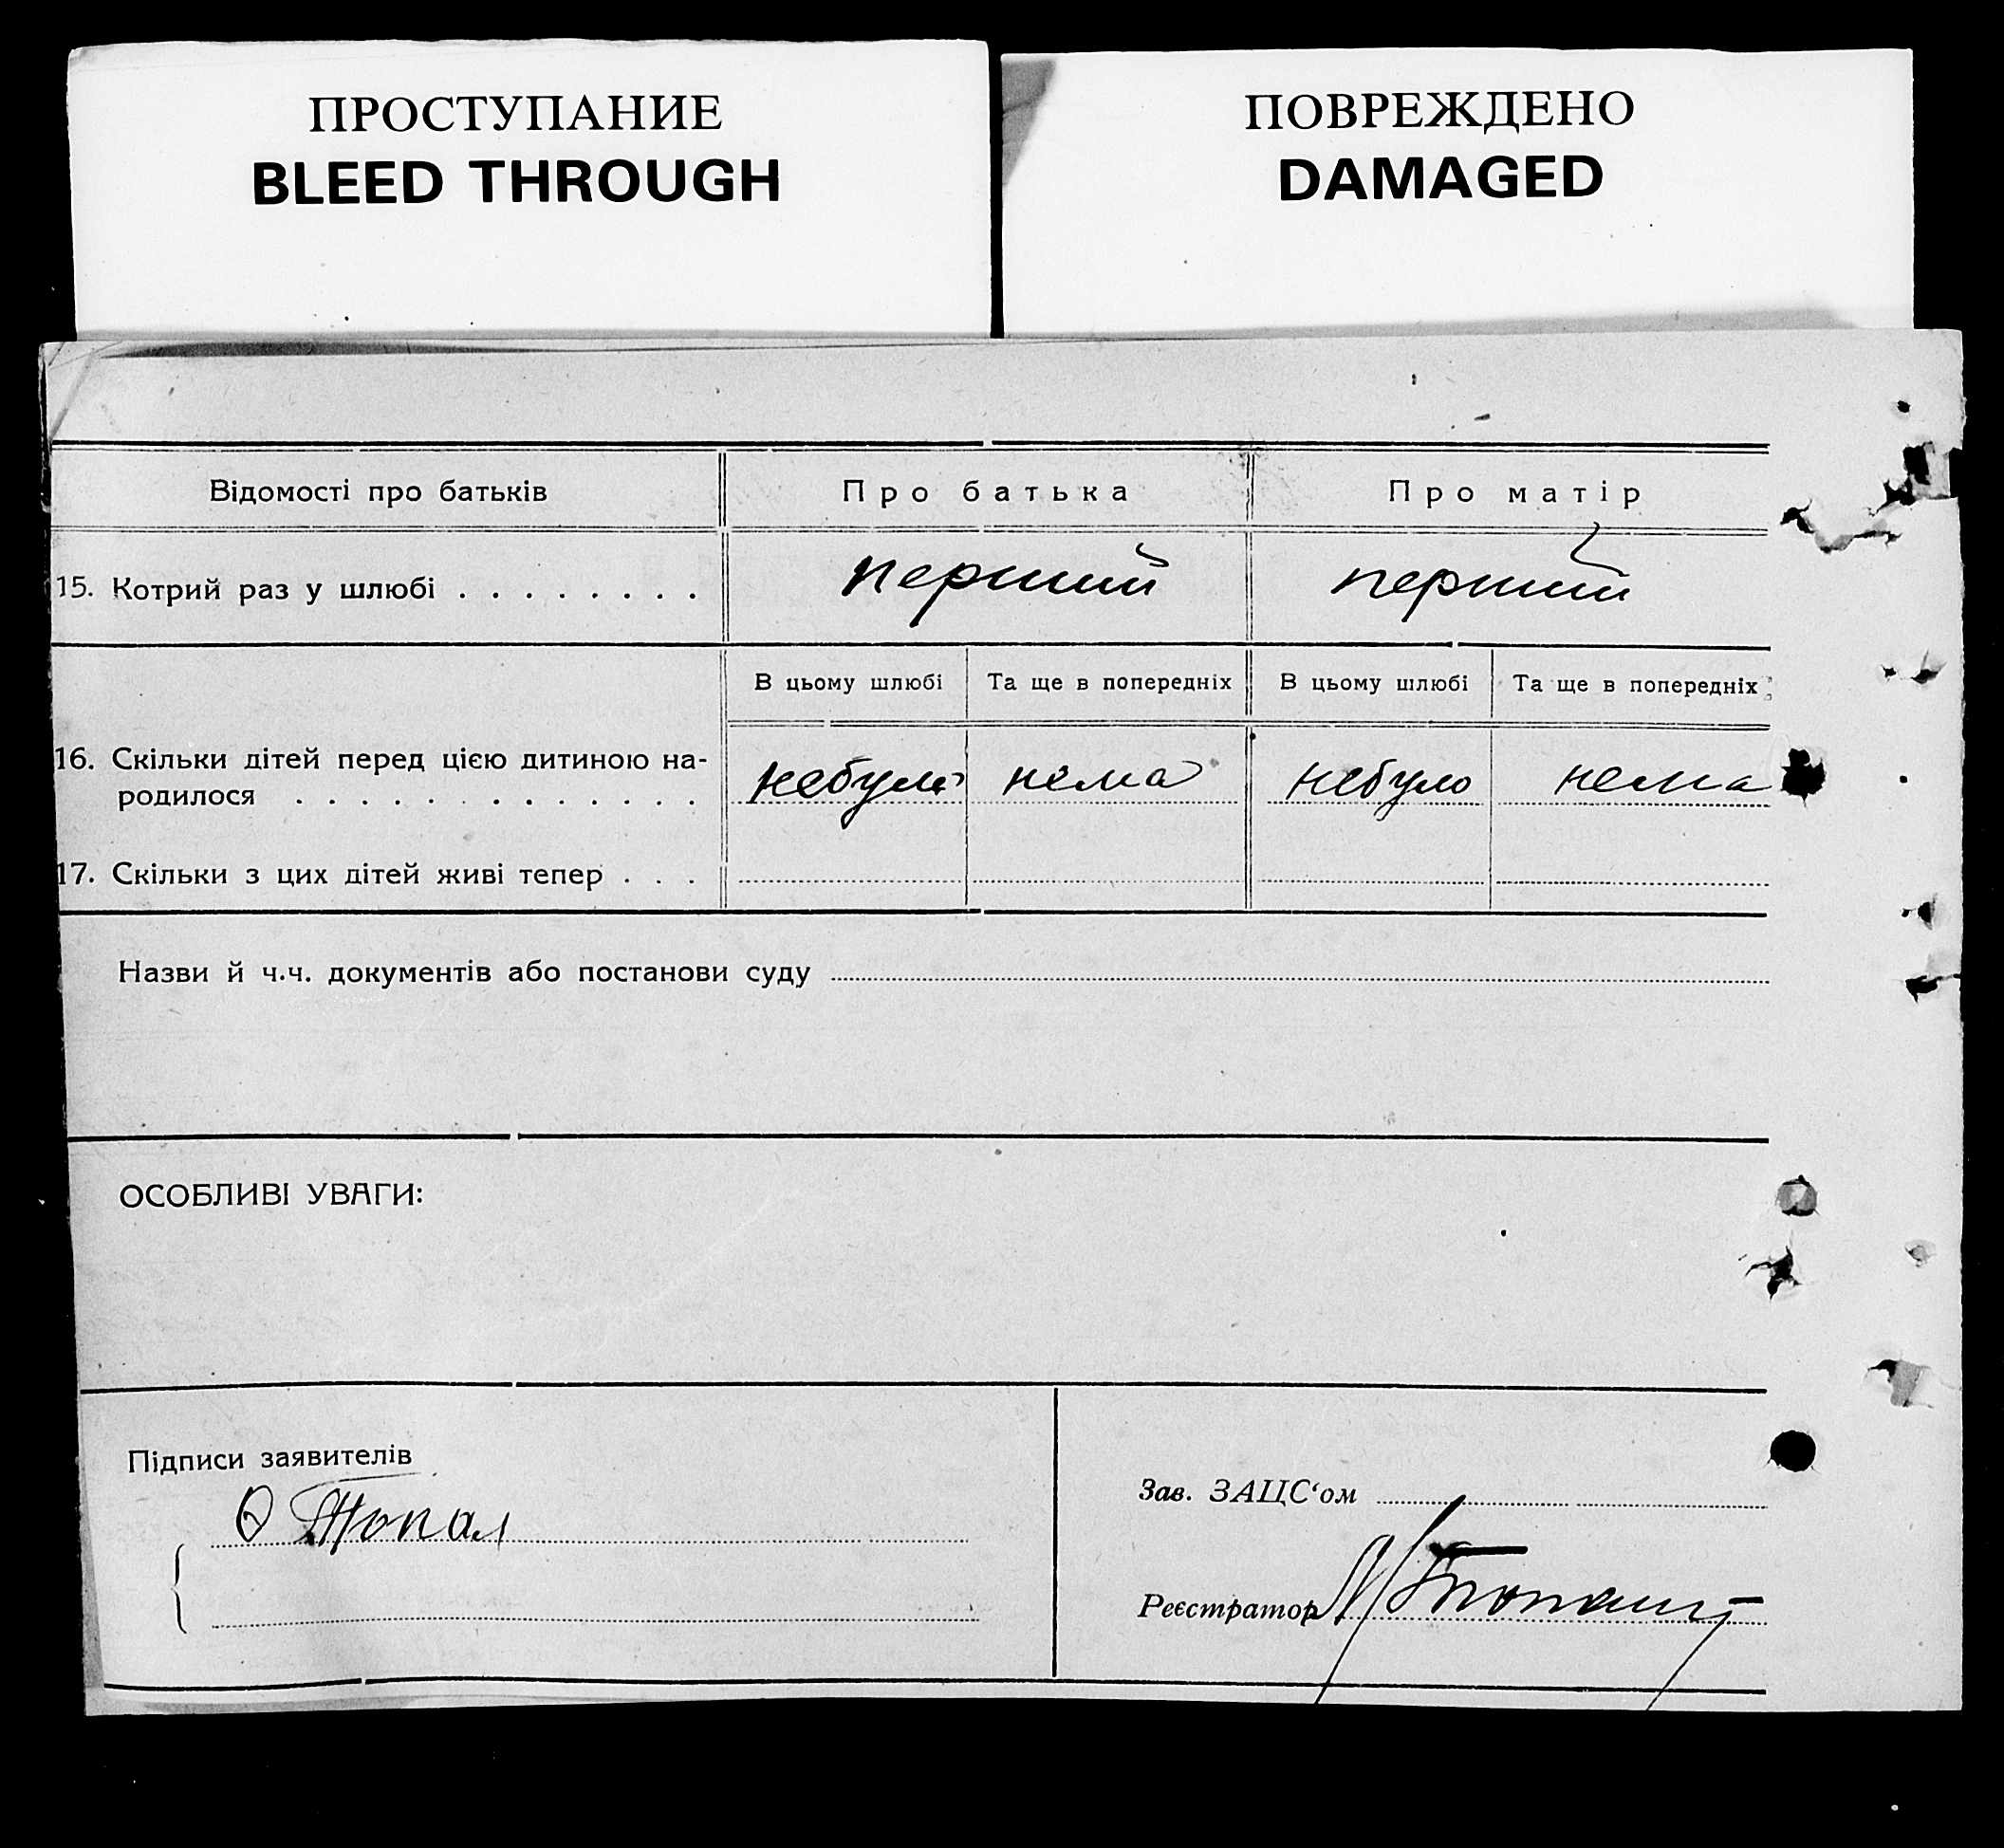 ПРОСТУПАНИЕ
BLEED THROUGH
ПОВРЕЖДЕНО
DAMAGED
Відомості про батьків
Про батька
Про матір
15. Котрий раз у шлюбі . . . . . . . .
перший
перший
В цьому шлюбі
Та ще в попередніх
В цьому шлюбі
Та ще в попередніх
16. Скільки дітей перед цією дитиною на-
родилося . . . . . . . . . . . . .
небуло
нема
небуло
нема
17. Скільки з цих дітей живі тепер . . .
Назви й ч.ч. документів або постанови суду
ОСОБЛИВІ УВАГИ:
Підписи заявителів
О Топал
Зав. ЗАЦС‘ом
Реєстратор